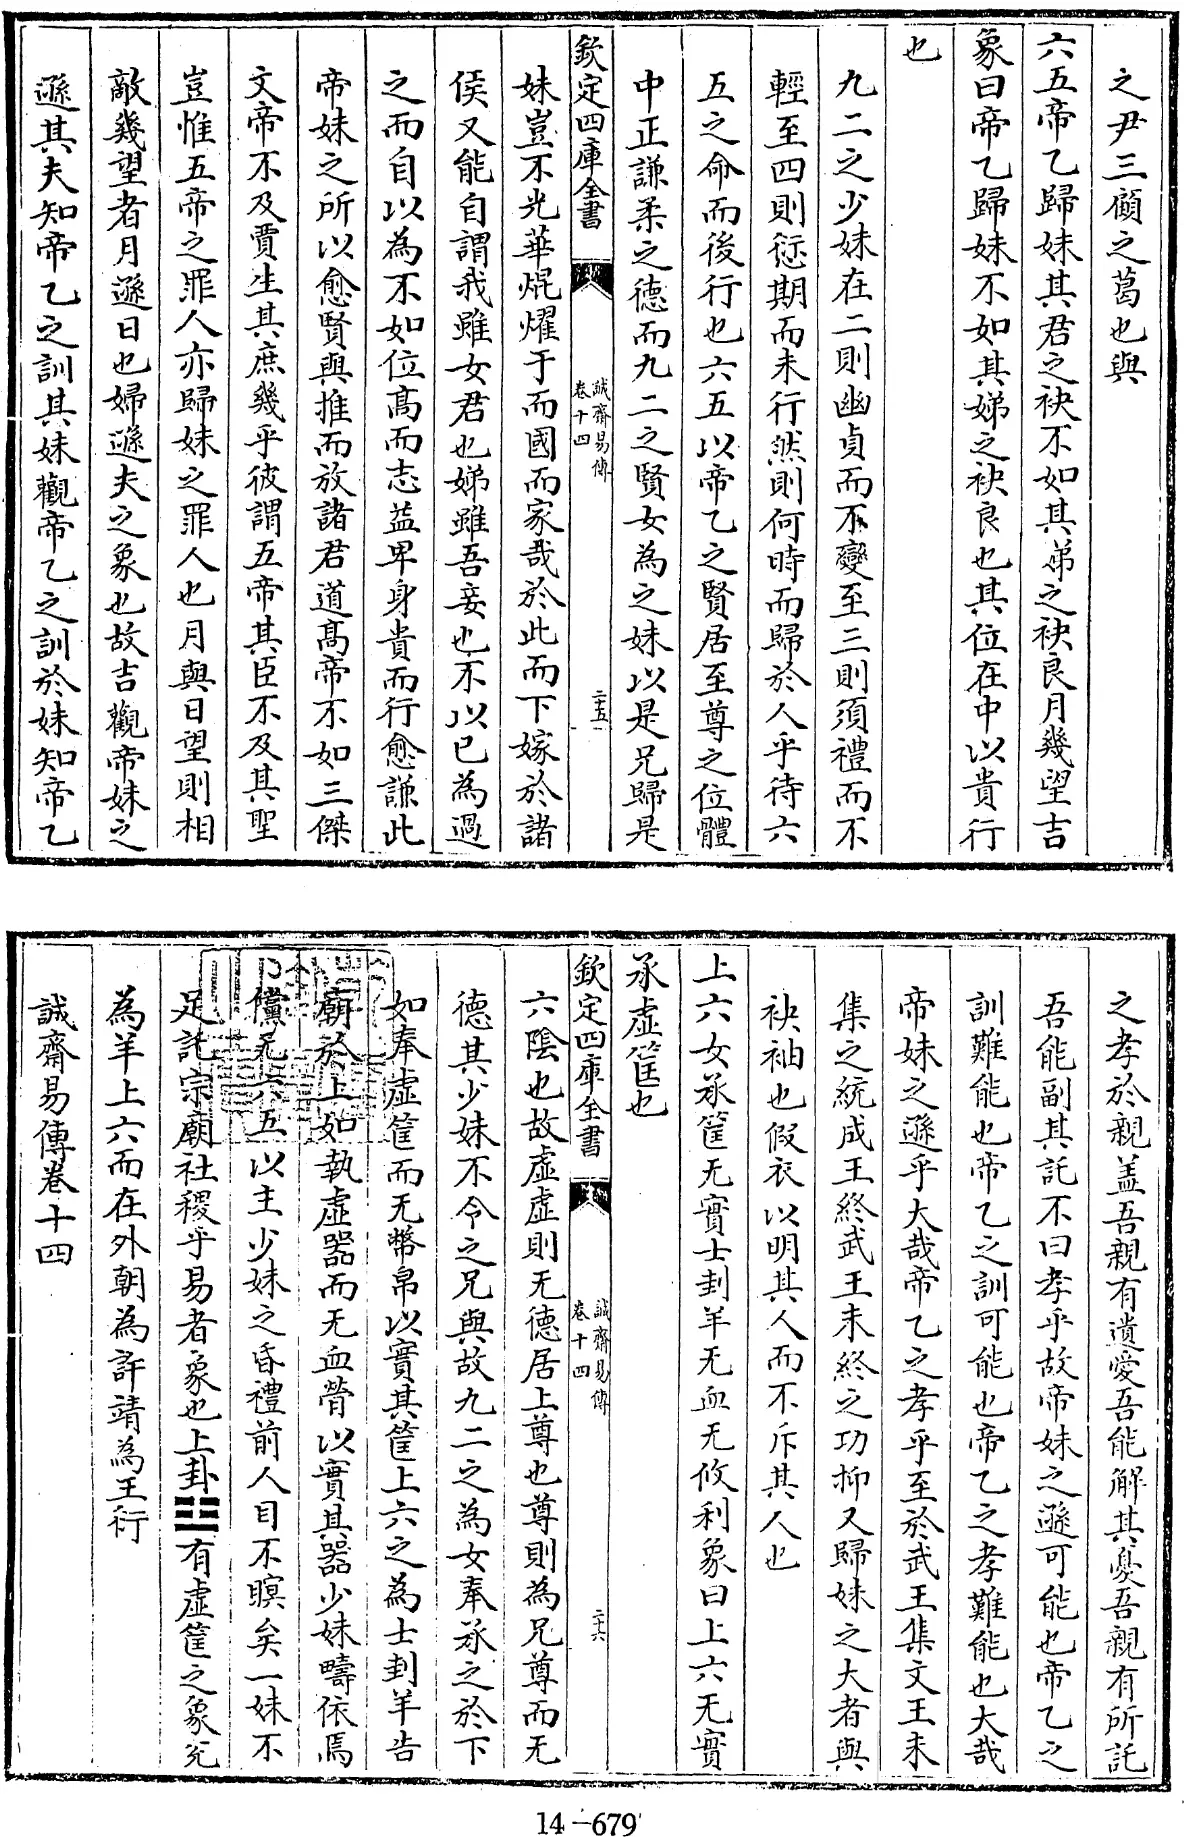 之尹三顧之葛也與
六五帝乙歸妹其君之袂不如其娣之袂良月幾望吉
象曰帝乙歸妹不如其娣之袂良也其位在中以貴行
也
九二之少妹在二則幽貞而不變至三則須禮而不
輕至四則愆期而未行然則何時而歸於人乎待六
五之命而後行也六五以帝乙之賢居至尊之位體
中正謙柔之德而九二之賢女為之妹以是兄歸是
欽定四庫全書
誠齋易傳
卷十四
二十五
妹豈不光華焜燿于而國而家哉於此而下嫁於諸
侯又能自謂我雖女君也娣雖吾妾也不以已為過
之而自以為不如位髙而志益卑身貴而行愈謙此
帝妹之所以愈賢與推而放諸君道髙帝不如三傑
文帝不及賈生其庶幾乎彼謂五帝其臣不及其聖
豈惟五帝之罪人亦歸妹之罪人也月與日望則相
敵幾望者月遜日也婦遜夫之象也故吉觀帝妹之
遜其夫知帝乙之訓其妹觀帝乙之訓於妹知帝乙
之孝於親葢吾親有遺愛吾能解其憂吾親有所託
吾能副其託不曰孝乎故帝妹之遜可能也帝乙之
訓難能也帝乙之訓可能也帝乙之孝難能也大哉
帝妹之遜乎大哉帝乙之孝乎至於武王集文王未
集之統成王終武王未終之功抑又歸妹之大者與
袂袖也假衣以明其人而不斥其人也
上六女承筐无實士刲羊无血无攸利象曰上六无實
承虛筐也
欽定四庫全書
誠齋易傳
卷十四
二十六
六陰也故虛虛則无德居上尊也尊則為兄尊而无
德其少妹不令之兄與故九二之為女奉承之於下
如奉虛筐而无幣帛以實其筐上六之為士刲羊告
廟於上如執虛器而无血膋以實其器少妹疇依焉
儻无六五以主少妹之昏禮前人目不瞑矣一妹不
足託宗廟社稷乎易者象也上卦☳有虛筐之象兊
為羊上六而在外朝為許靖為王衍
誠齋易傳卷十四
14-679